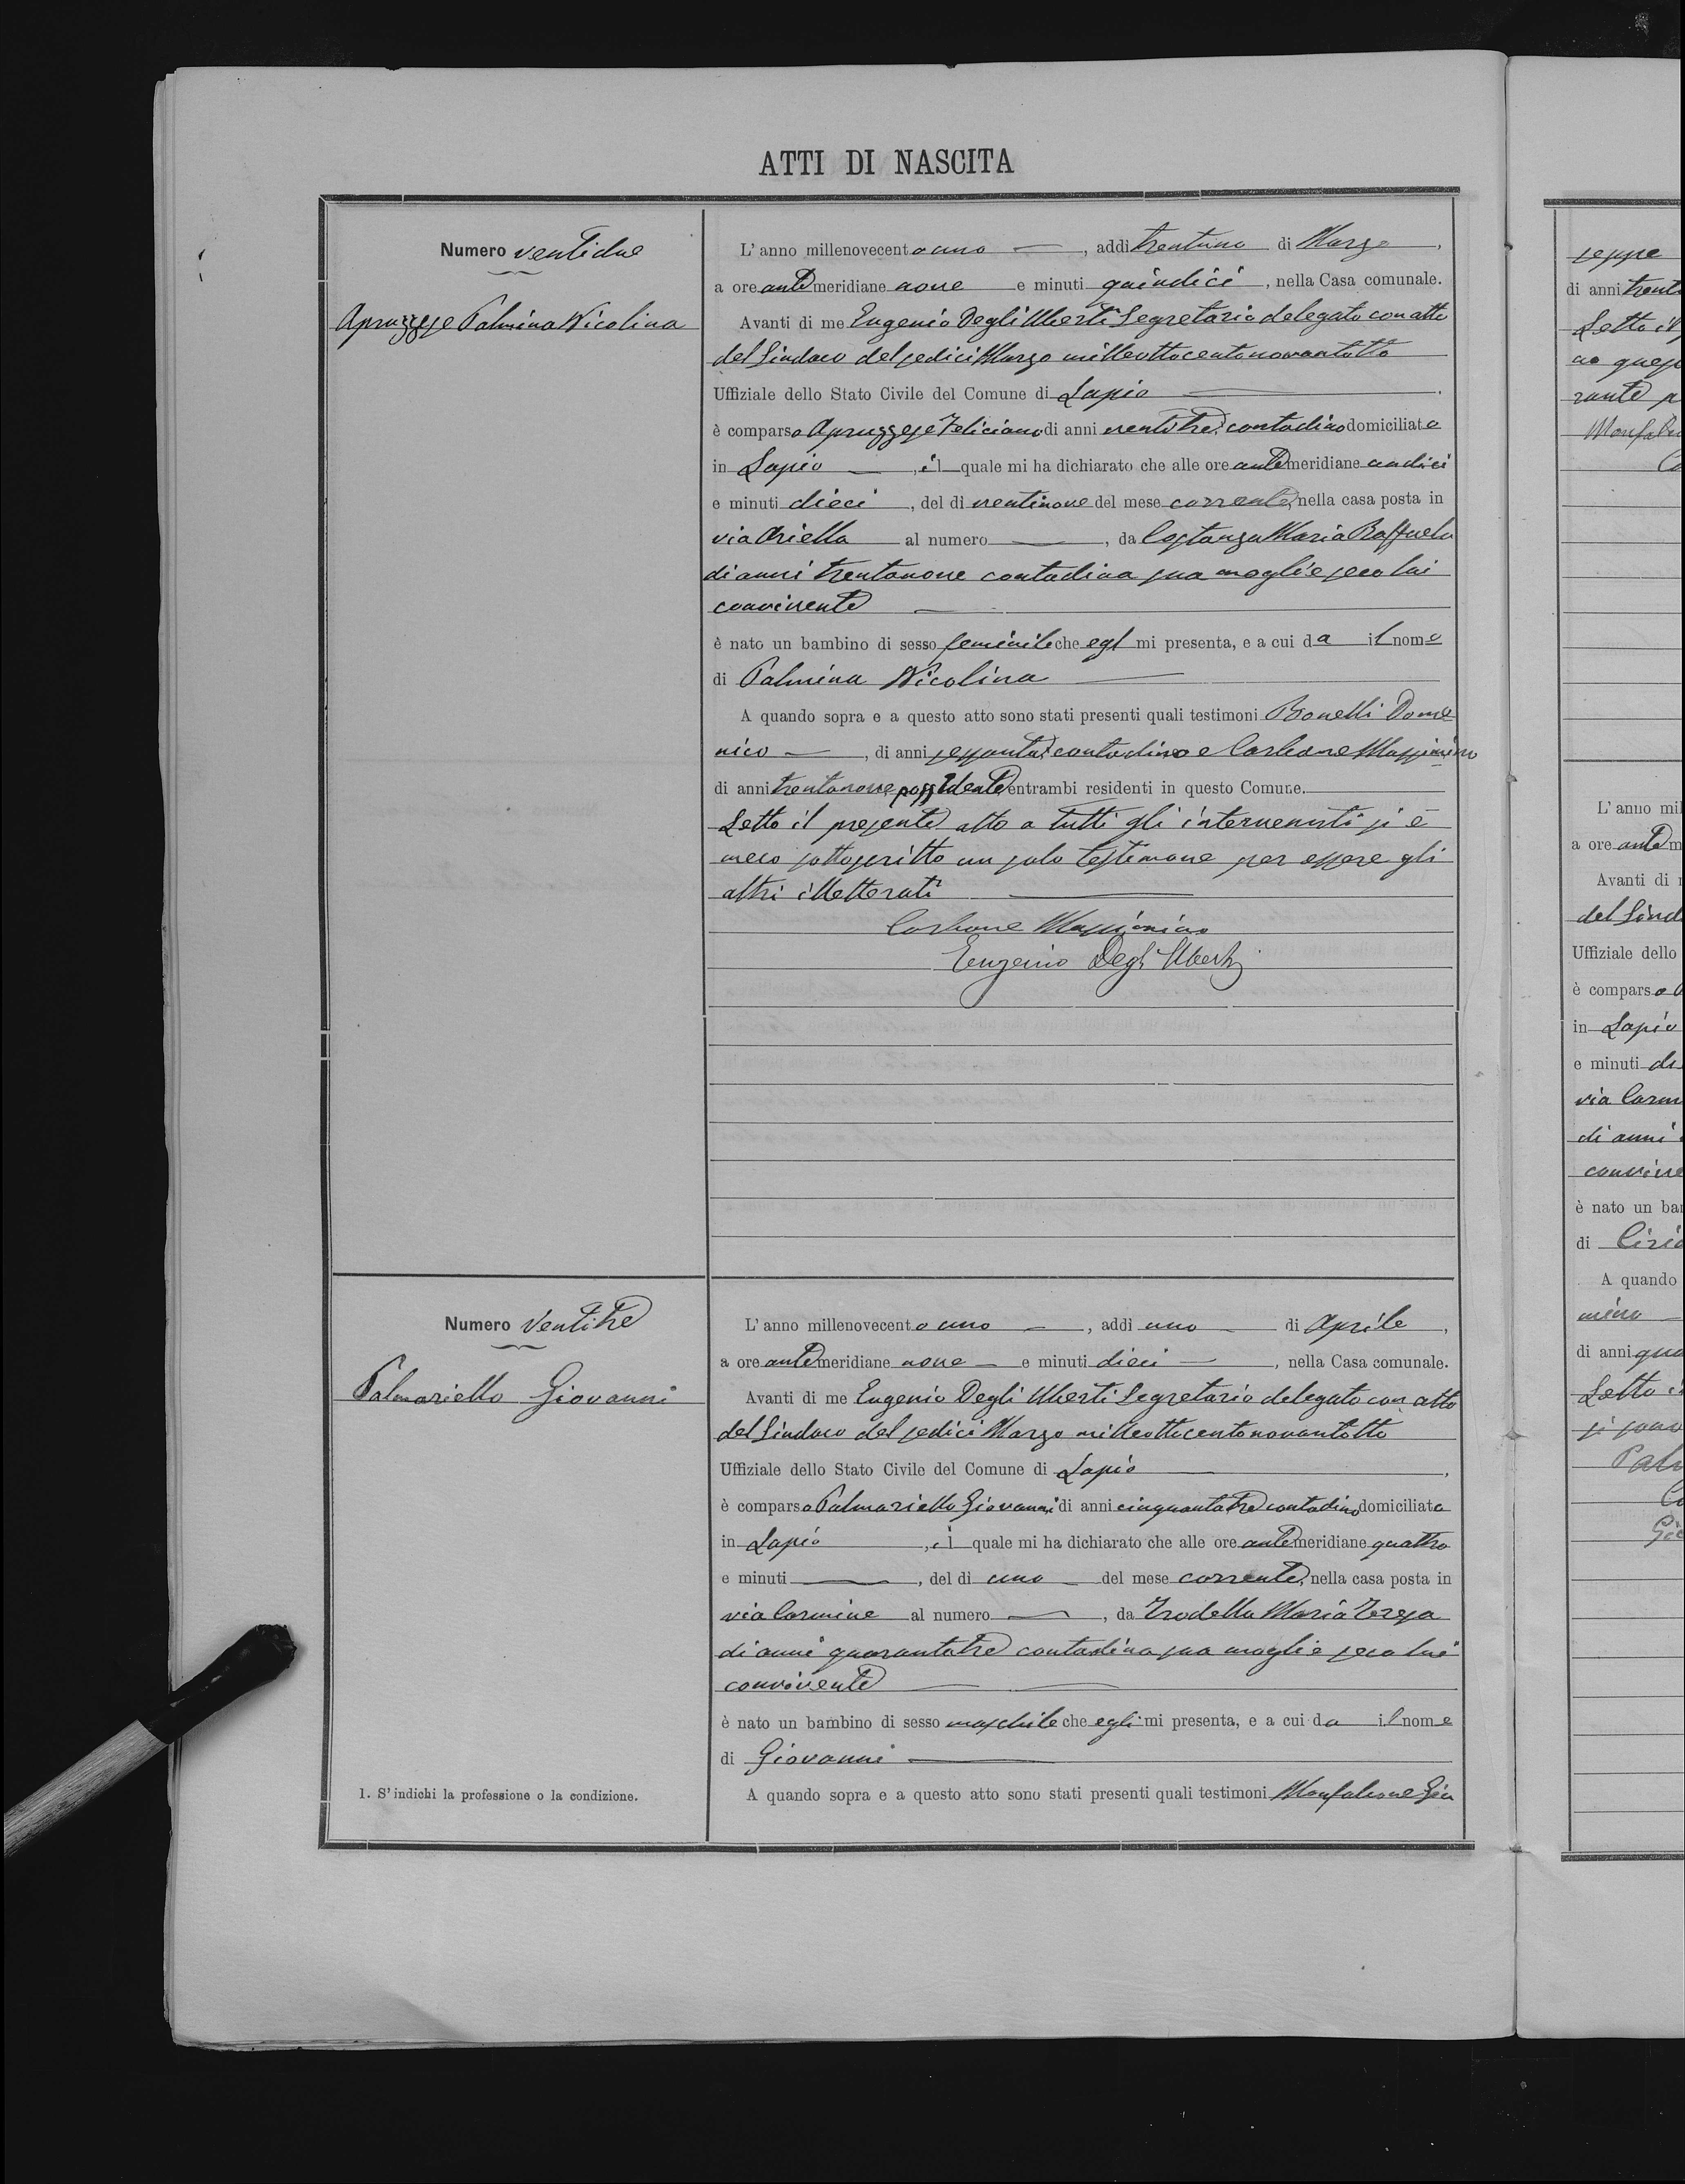 ATTI DI NASCITA
Numero ventidue
Apruzzese Palmina Nicolina
L'anno millenovecento uno, addì trentuno di Marzo,
a ore antemeridiane nove e minuti quindici, nella Casa comunale.
Avanti di me Eugenio Degli Uberti Segretario delegato con atto
del Sindaco del sedici Marzo milleottocentonovantotto
Uffiziale dello Stato Civile del Comune di Lapio.
è comparso Apruzzese Feliciano di anni ventitre, contadino domiciliato
in Lapio, il quale mi ha dichiarato che alle ore antemeridiane undici
e minuti dieci, del dì ventinove del mese corrente, nella casa posta in
via Ariella al numero, da Costanza Maria Raffaela
di anni trentanove contadina sua moglie seco lui
convivente
è nato un bambino di sesso feminile che egl mi presenta, e a cui da il nome
di Palmina Nicolina
A quando sopra e a questo atto sono stati presenti quali testimoni Bonelli Dome
nico, di anni sessanta, contadino e Carbone Massimino
di anni trentanove, possidente entrambi residenti in questo Comune.
Letto il presente atto a tutti gli intervenuti si è
meco sottoscritto un solo testimone per essere gli
altri illetterati
Carbone Massimino
Eugenio Degli Uberti
Numero ventitre
Palmariello Giovanni
L'anno millenovecento uno, addì uno di Aprile,
a ore antemeridiane nove e minuti dieci, nella Casa comunale.
Avanti di me Eugenio Degli Uberti Segretario delegato con atto
del Sindaco del sedici Marzo milleottocentonovantotto
Uffiziale dello Stato Civile del Comune di Lapio,
è comparso Palmariello Giovanni di anni cinquantatre contadino domiciliato
in Lapio, il quale mi ha dichiarato che alle ore antemeridiane quattro
e minuti, del dì uno del mese corrente, nella casa posta in
via Carmine al numero, da Trodella Maria Teresa
di anni quarantatre contadina sua moglie seco lui
convivente
è nato un bambino di sesso maschile che egli mi presenta, e a cui da il nome
di Giovanni
A quando sopra e a questo atto sono stati presenti quali testimoni Monfalcone Giu
1. S'indichi la professione o la condizione.
seppe
di anni trent
Letto il
no ques
rante
Monfal
L'anno mil
a ore ante m
Avanti di
del Sind
Uffiziale dello
è comparso
in Lapio
e minuti
via Carm
di anni
convive
è nato un ba
di Ciria
A quando
mino
di anni qua
Letto i
si sono
Palm